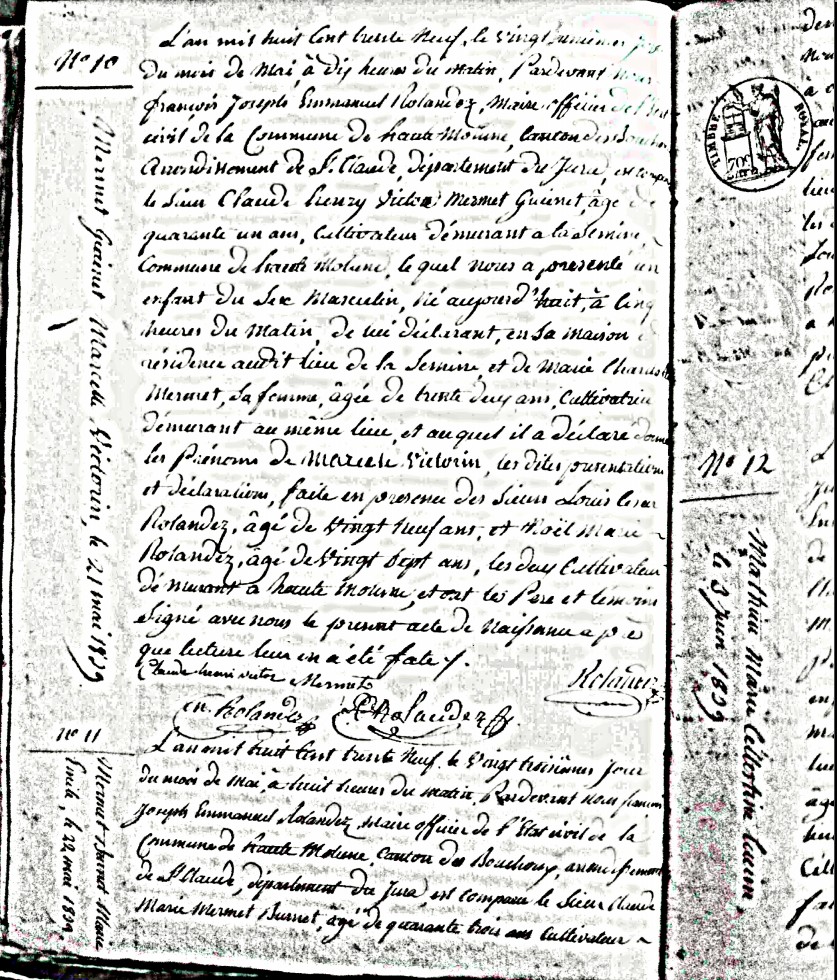 N.o 10
Mermet Guinet Marcelle Victorin, le 21 mai 1839
L'an mil huit Cent trente Neuf, le Vingt
du mois de Mai, à dix heures du Matin, Pardevant Nous
françois Joseph Emmanuel Rolandez, Maire officier de l'Etat
civil de la Commune de haute Molune, Canton des Bouchoux
Arrondissement de St. Claude, département du Jura, est comparu
le Sieur Claude henry Victor Mermet Guinet, âgé de
quarante un ans, Cultivateur démurant a la Semine,
Commune de haute Molune, le quel nous a presenté un
enfant du Sexe Masculin, Né aujourd'huit, à Cinq
heures du Matin, de lui déclarant, en sa maison
résidence audit lieu de la Semine et de Marie
Mermet, Sa femme, âgée de trente deux ans, Cultivatrice
démurant au même lieu, et auquel il a déclaré
les Prénoms de Marcelle Victorin, les dites presentations
et déclarations, faite en presence des Sieurs Louis Cesar
Rolandez, âgé de Vingt Neuf ans, et Noël Marie
Rolandez, âgé de Vingt Sept ans, les deux Cultivateur
démurant à haute molune, et ont les Pere et temoins
Signé avec nous le present acte de Naissance a prè
que lecture leur en a été fate
Claude henri victor Mermet
Rolandez
Rolandez
Rolandez
N.o 11
Mermet Burnet Marie
Emile, le 22 mai 1839
L'an mil huit Cent trente Neuf, le Vingt troisième Jour
du mois de Mai, à huit heures du matin, Pardevant Nous françois
Joseph Emmanuel Rolandez, Maire officier de l'Etat civil de la
Commune de haute Molune, Canton des Bouchoux, arrondissement
de St. Claude, département du Jura, est comparu le Sieur Claude
Marie Mermet Burnet, âgé de quarante trois ans Cultivateur
TIMBRE ROYAL
70c
N.o 12
Mathieu Marie Célestine
le 3 Juin 1839